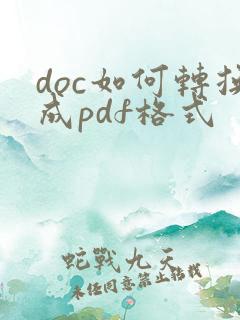 doc如何轉換
成pdf格式
蛇戰九天
未經同意禁止轉載